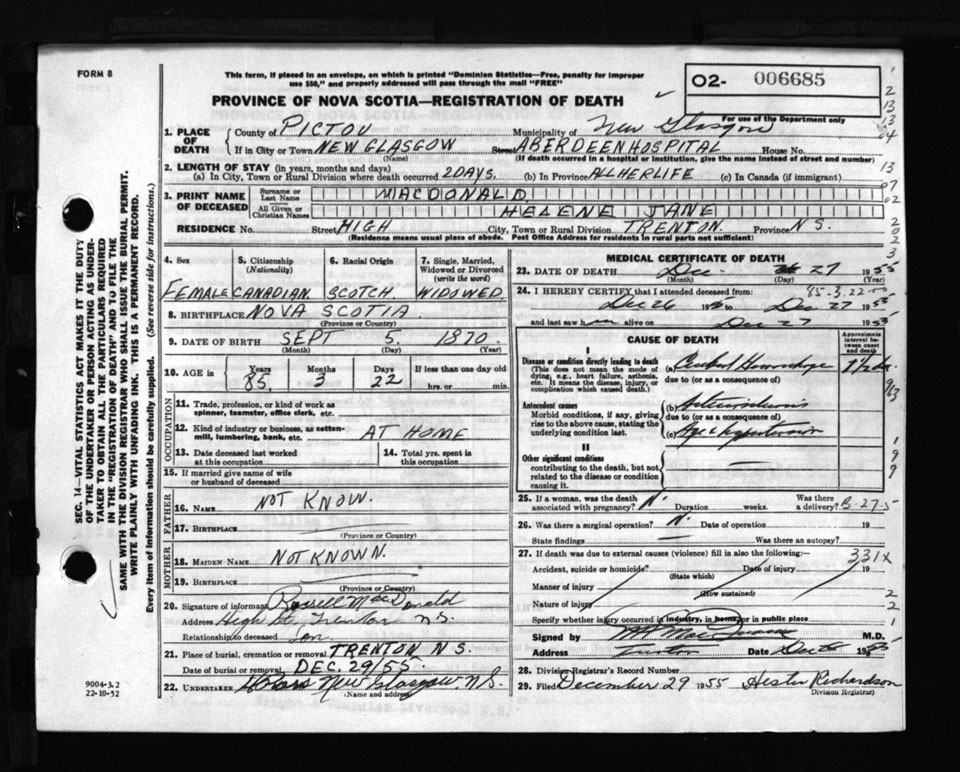 FORM 8
This form, if placed in an envelope, on which is printed "Dominion Statistics—Free, penalty for improper
use $50," and properly addressed will pass through the mail "FREE"
PROVINCE OF NOVA SCOTIA—REGISTRATION OF DEATH
O2- 006685
For use of the Department only
1. PLACE OF DEATH
County of PICTOU Municipality of New Glasgow
If in City or Town NEW GLASGOW Street ABERDEEN HOSPITAL House No.
(Name) (If death occurred in a hospital or institution, give the name instead of street and number)
2. LENGTH OF STAY (in years, months and days)
(a) In City, Town or Rural Division where death occurred 2 DAYS. (b) In Province ALL HER LIFE (c) In Canada (if immigrant)
3. PRINT NAME OF DECEASED
Surname or Last Name MACDONALD
All Given or Christian Names HELENE JANE
RESIDENCE No. Street HIGH City, Town or Rural Division TRENTON Province N S.
(Residence means usual place of abode. Post Office Address for residents in rural parts not sufficient)
4. Sex FEMALE
5. Citizenship (Nationality) CANADIAN
6. Racial Origin SCOTCH
7. Single, Married, Widowed or Divorced (write the word) WIDOWED
8. BIRTHPLACE NOVA SCOTIA
(Province or Country)
9. DATE OF BIRTH SEPT 5. 1870
(Month) (Day) (Year)
10. AGE in Years 85. Months 3 Days 22 If less than one day old hrs. or min.
OCCUPATION
11. Trade, profession, or kind of work as spinner, teamster, office clerk, etc.
12. Kind of industry or business, as cotton-mill, lumbering, bank, etc. AT HOME
13. Date deceased last worked at this occupation
14. Total yrs. spent in this occupation
15. If married give name of wife or husband of deceased
FATHER
16. NAME NOT KNOW.
17. BIRTHPLACE
(Province or Country)
MOTHER
18. MAIDEN NAME NOT KNOWN.
19. BIRTHPLACE
(Province or Country)
20. Signature of informant Russell MacDonald
Address High St., Trenton N.S.
Relationship to deceased Son
21. Place of burial, cremation or removal TRENTON N S.
Date of burial or removal DEC. 29/55.
22. UNDERTAKER New Glasgow, N.S.
(Name and address)
MEDICAL CERTIFICATE OF DEATH
23. DATE OF DEATH Dec 27 1955
(Month) (Day)
24. I HEREBY CERTIFY that I attended deceased from: 85-3-22
Dec 26 1955 to Dec 27 1955
and last saw h alive on Dec 27 1955
CAUSE OF DEATH
Approximate interval between onset and death
I
Disease or condition directly leading to death
(This does not mean the mode of dying, e.g., heart failure, asthenia, etc. It means the disease, injury, or complication which caused death.
(a) Cerebral Hemorrhage
due to (or as a consequence of)
Antecedent causes
Morbid conditions, if any, giving rise to the above cause, stating the underlying condition last.
(b) Arteriosclerosis
due to (or as a consequence of)
(c) Age & Hypertension
II
Other significant conditions contributing to the death, but not related to the disease or condition causing it.
25. If a woman, was the death associated with pregnancy? N. Duration weeks. Was there a delivery? B-27-5
26. Was there a surgical operation? N. Date of operation 19
State findings Was there an autopsy?
27. If death was due to external causes (violence) fill in also the following:— 331x
Accident, suicide or homicide? Date of injury 19
(State which)
Manner of injury
(How sustained)
Nature of injury
Specify whether injury occurred in industry, in home, or in public place
Signed by M.D.
Address Trenton Date Dec 1955
28. Division Registrar's Record Number
29. Filed December 29 1955 Hester Richardson
Division Registrar
SEC. 14—VITAL STATISTICS ACT MAKES IT THE DUTY
OF THE UNDERTAKER OR PERSON ACTING AS UNDER-
TAKER TO OBTAIN ALL THE PARTICULARS REQUIRED
IN THE "REGISTRATION OF DEATH" AND TO FILE THE
SAME WITH THE DIVISION REGISTRAR WHO SHALL ISSUE THE BURIAL PERMIT.
WRITE PLAINLY WITH UNFADING INK. THIS IS A PERMANENT RECORD.
Every item of information should be carefully supplied. (See reverse side for instructions.)
9004-3.2
22-10-52